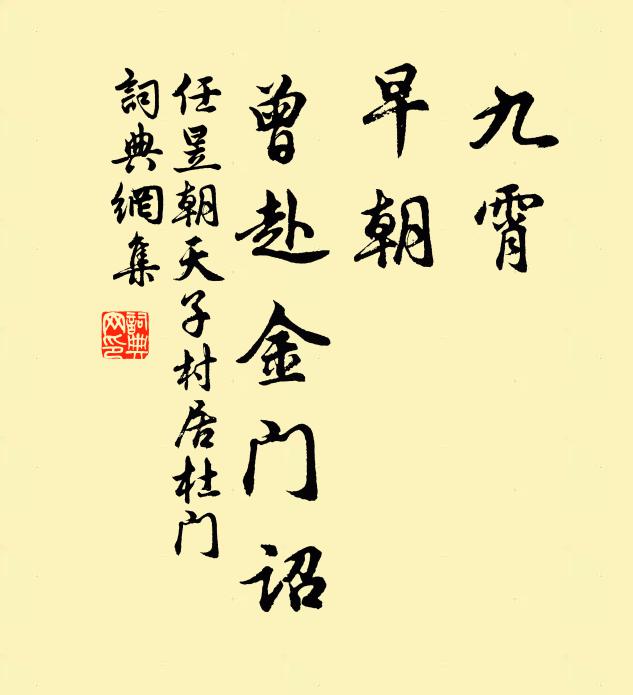 九霄
早朝
曾赴金门诏
任昱朝天子村居杜门
詞典網集
詞典网印